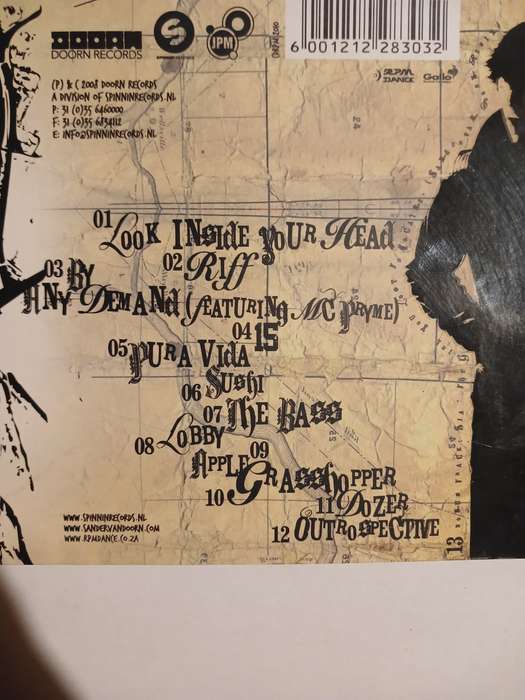 DOORN RECORDS
SPINNIN' RECORDS
JPM
6 001212 283032
RPM
DANCE
Gallo
(P) & (C) 2008 DOORN RECORDS
A DIVISION OF SPINNINRECORDS.NL
P: 31 (0)35 6460000
E: INFO@SPINNINRECORDS.NL
01 LOOK INSIDE YOUR HEAD
02 RIFF
03 BY
ANY DEMAND (FEATURING MC PRYME)
04 15
05 PURA VIDA
06 SUSHI
07 THE BASS
08 LOBBY
09 APPLE
10 GRASSHOPPER
11 DOZER
12 OUTROSPECTIVE
13 BONUS TRACK:
WWW.SPINNINRECORDS.NL
WWW.SANDERVANDOORN.COM
WWW.RPMDANCE.CO.ZA